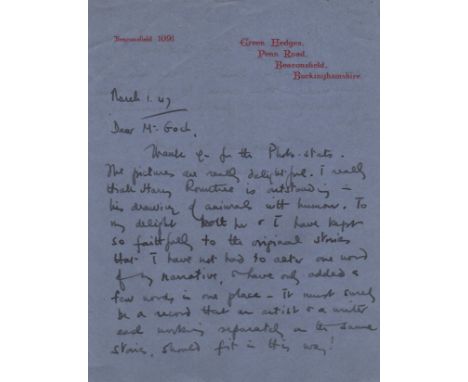 Beaconsfield 1091
Green Hedges,
Penn Road,
Beaconsfield,
Buckinghamshire.
March 1. 47
Dear Mr. Goch,
Thank you for the Photo-stats.
The pictures are really delightful. I really
think Harry Rountree is outstanding -
his drawing of animals with humour. To
my delight both he & I have kept
so faithfully to the original stories
that I have not had to alter one word
of my narrative, & have only added a
few words in one place - It must surely
be a record that an artist & a writer
each working separately on the same
stories, should fit in this way!